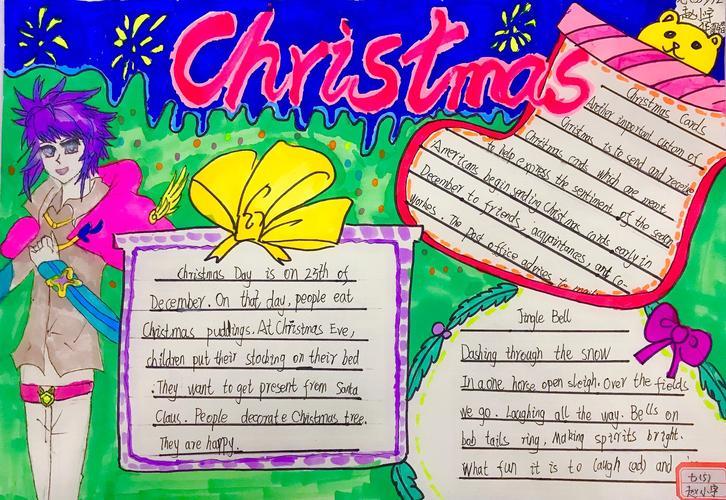 Christmas
Christmas Day is on 25th of
December. On that day, people eat
Christmas puddings. At Christmas Eve,
children put their stocking on their bed
. They want to get present from Santa
Claus. People decorate Christmas tree.
They are happy.
Christmas Cards
Another important custom of
Christmas is to send and receive
Christmas cards which are meant
to help express the sentiment of the season
Americans begin sending Christmas cards early in
December to friends, acquaintances, and co-
workes. The post office advises to mail
Jingle Bell
Dashing through the snow
In a one horse open sleigh. Over the fields
we go. Laughing all the way. Bells on
bob tails ring. Making spirits bright.
What fun it is to laugh and